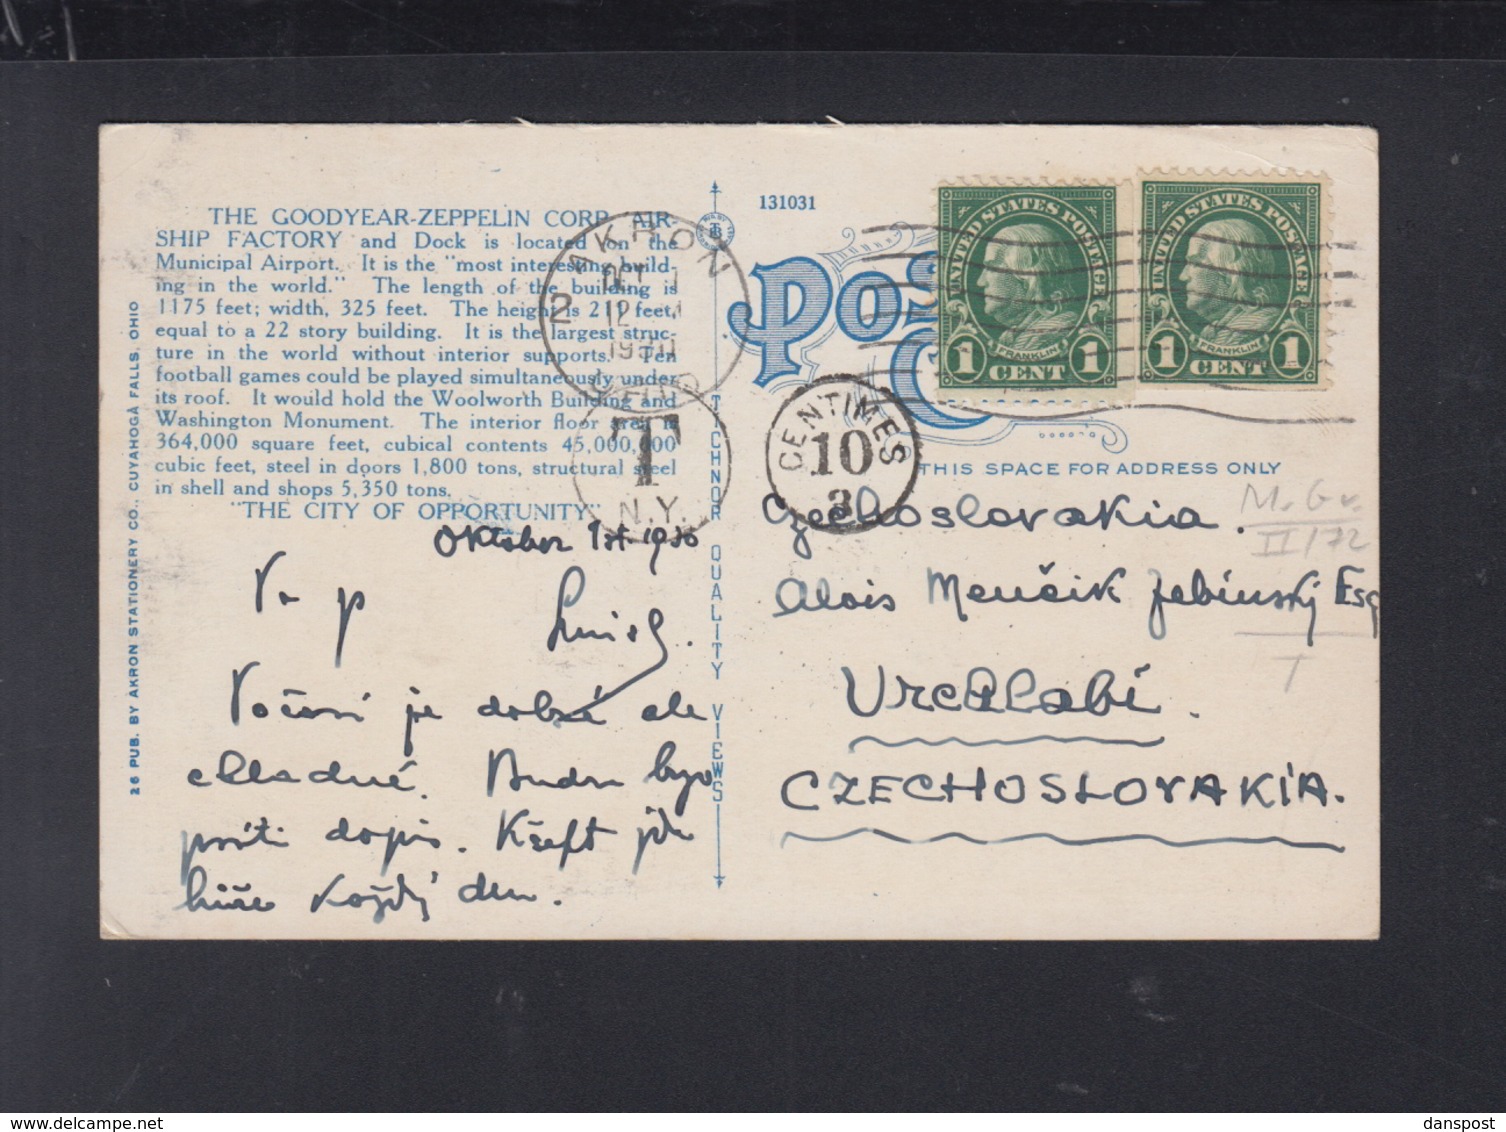 THE GOODYEAR-ZEPPELIN CORP. AIR-
SHIP FACTORY and Dock is located on the
Municipal Airport. It is the "most interesting build-
ing in the world." The length of the building is
1175 feet; width, 325 feet. The height is 211 feet,
equal to a 22 story building. It is the largest struc-
ture in the world without interior supports. Ten
football games could be played simultaneously under
its roof. It would hold the Woolworth Building and
Washington Monument. The interior floor area is
364,000 square feet, cubical contents 45,000,000
cubic feet, steel in doors 1,800 tons, structural steel
in shell and shops 5,350 tons.
"THE CITY OF OPPORTUNITY."
26 PUB. BY AKRON STATIONERY CO., CUYAHOGA FALLS, OHIO
QUALITY VIEWS
131031
POS
THIS SPACE FOR ADDRESS ONLY
UNITED STATES POSTAGE
FRANKLIN
1 CENT 1
UNITED STATES POSTAGE
FRANKLIN
1 CENT 1
AKRON
OCT 1
12
OHIO
T
N.Y.
CENTIMES
10
3
Oktober 1st. 1930
Počasí je dobré ale
chladné. Budu
dopis.
hůře každý den.
Czechoslovakia.
Alois Menčík Jabínský Esq
Vrchlabí.
CZECHOSLOVAKIA.
M. Gv.
II/72
T
danspost